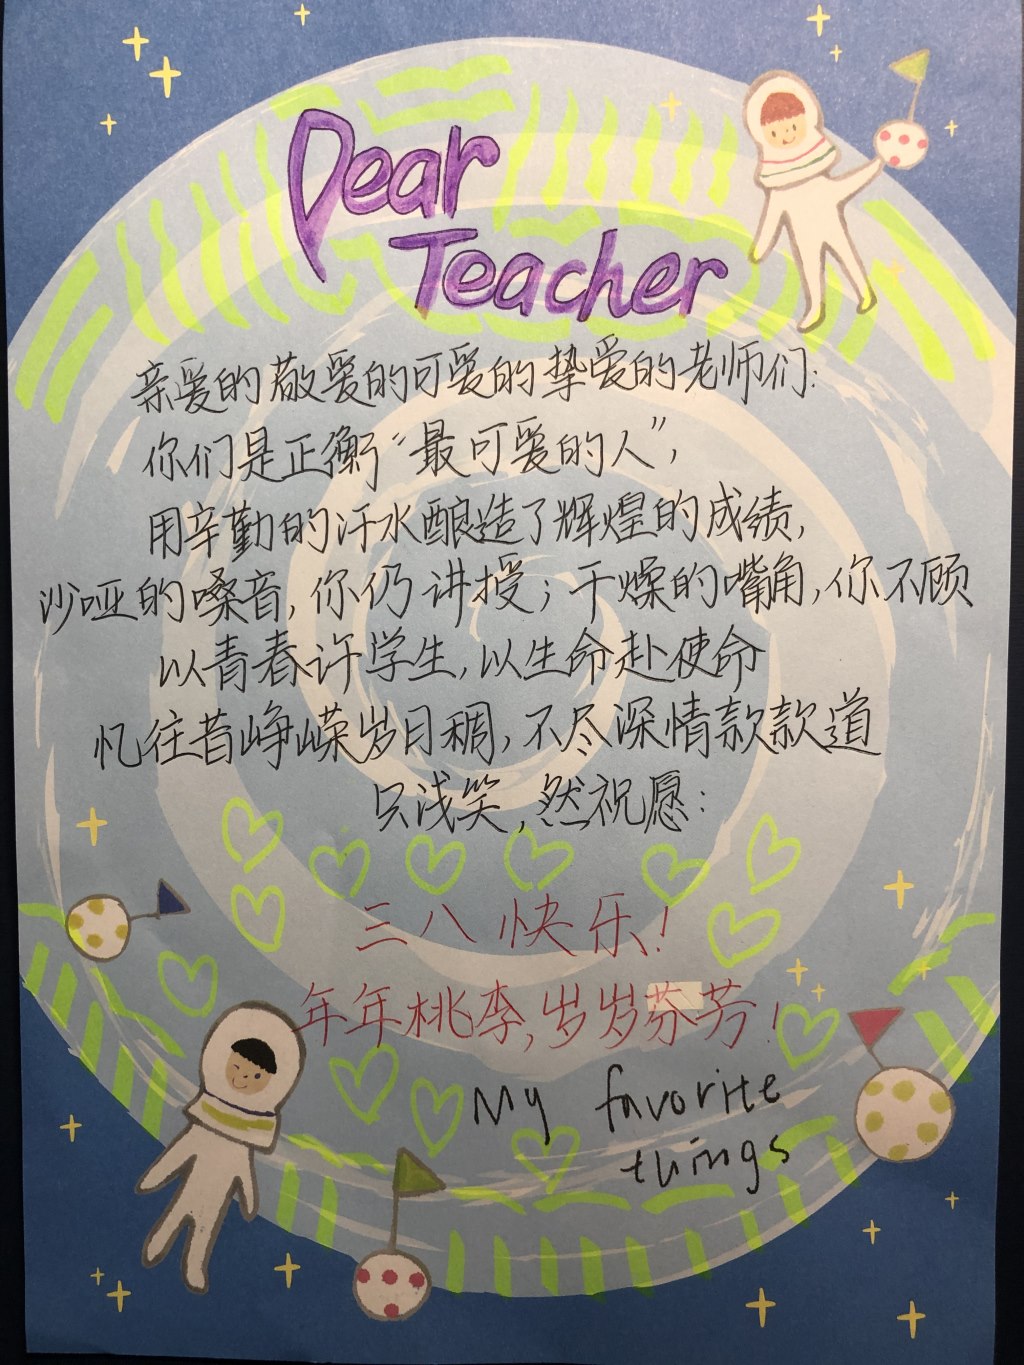 Dear
Teacher
亲爱的敬爱的可爱的挚爱的老师们:
你们是正衡“最可爱的人”,
用辛勤的汗水酿造了辉煌的成绩,
沙哑的嗓音,你仍讲授;干燥的嘴角,你不顾
以青春许学生,以生命赴使命
忆往昔峥嵘岁月稠,不尽深情款款道
只浅笑,然祝愿:
三八快乐!
年年桃李,岁岁芬芳!
My favorite
things